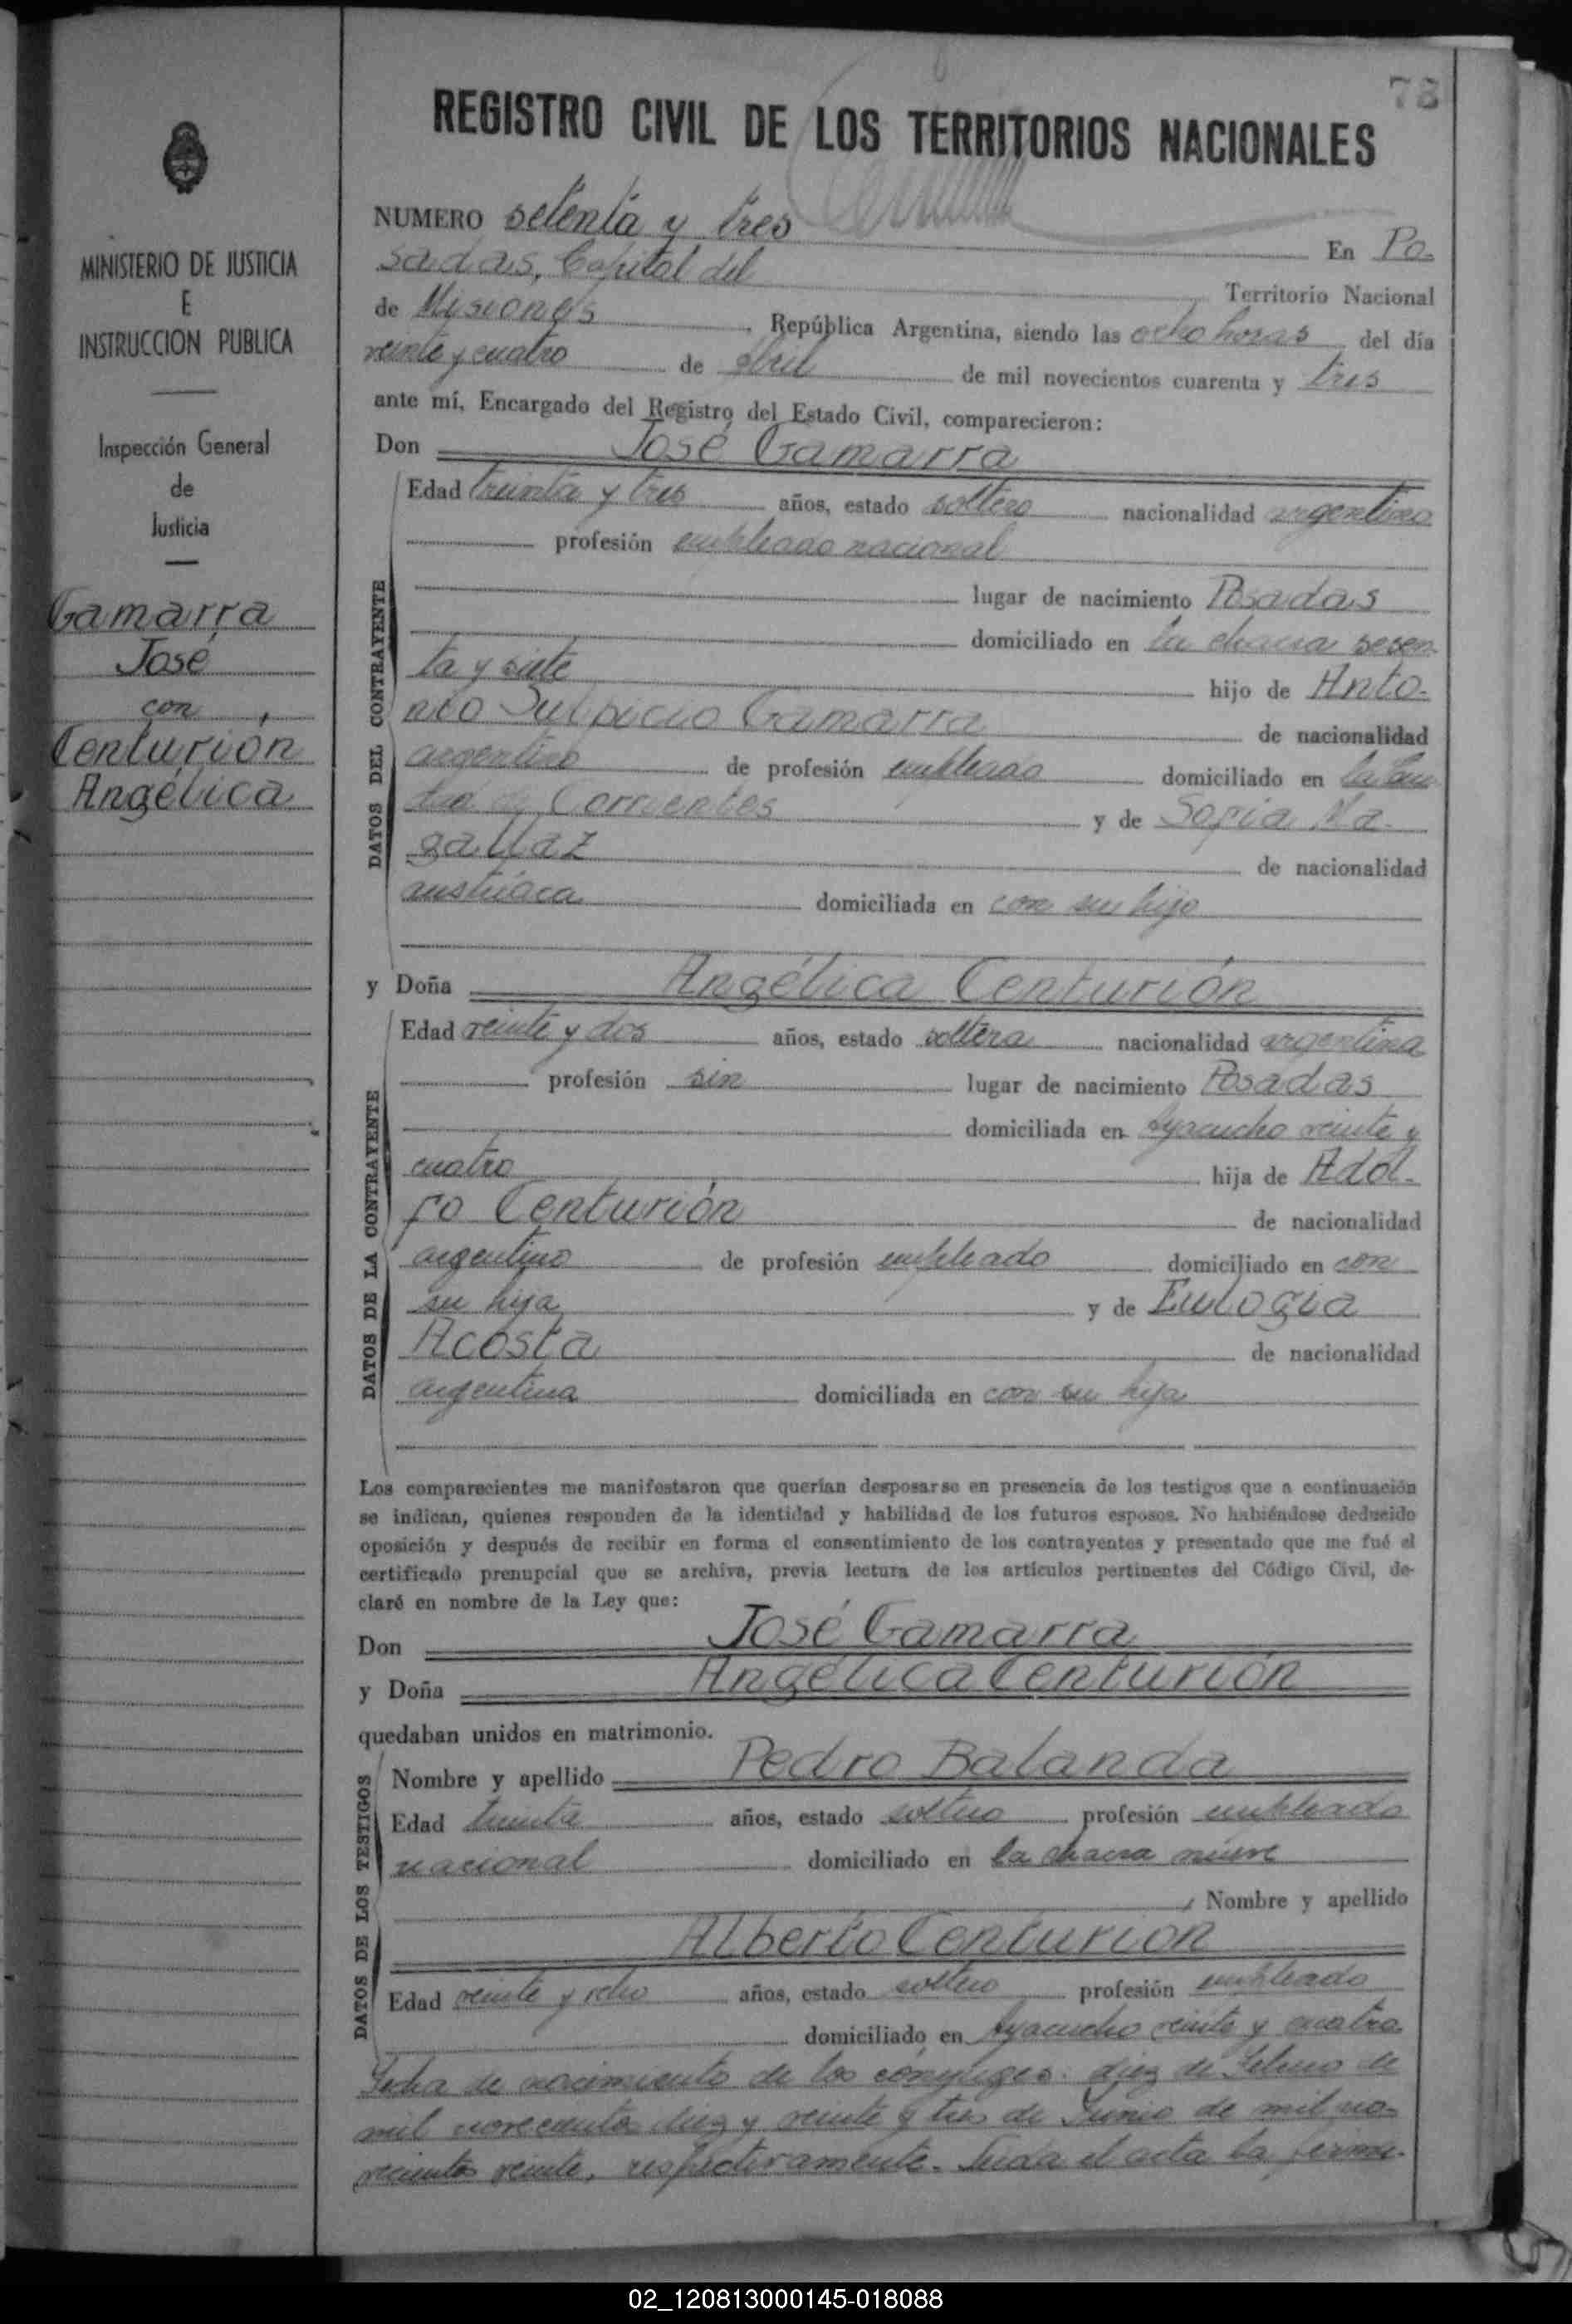 73
REGISTRO CIVIL DE LOS TERRITORIOS NACIONALES
MINISTERIO DE JUSTICIA
E
INSTRUCCION PUBLICA
Inspección General
de
Justicia
Gamarra
José
con
Centurión
Angélica
NUMERO setenta y tres En Po-
sadas, Capital del Territorio Nacional
de Misiones, República Argentina, siendo las ocho horas del día
veinte y cuatro de abril de mil novecientos cuarenta y tres
ante mí, Encargado del Registro del Estado Civil, comparecieron:
Don José Gamarra
DATOS DEL CONTRAYENTE
Edad treinta y tres años, estado soltero nacionalidad argentino
profesión empleado nacional
lugar de nacimiento Posadas
domiciliado en la chacra sesen-
ta y siete hijo de Anto-
nio Sulpicio Gamarra de nacionalidad
argentino de profesión empleado domiciliado en
Corrientes y de Sofia Ma-
gallaz de nacionalidad
austríaca domiciliada en con su hijo
y Doña Angélica Centurión
DATOS DE LA CONTRAYENTE
Edad veinte y dos años, estado soltera nacionalidad argentina
profesión sin lugar de nacimiento Posadas
domiciliada en Ayacucho veinte y
cuatro hija de Adol-
fo Centurión de nacionalidad
argentino de profesión empleado domiciliado en con
su hija y de Eulogia
Acosta de nacionalidad
argentina domiciliada en con su hija
Los comparecientes me manifestaron que querían desposarse en presencia de los testigos que a continuación
se indican, quienes responden de la identidad y habilidad de los futuros esposos. No habiéndose deducido
oposición y después de recibir en forma el consentimiento de los contrayentes y presentado que me fué el
certificado prenupcial que se archiva, previa lectura de los artículos pertinentes del Código Civil, de-
claré en nombre de la Ley que:
Don José Gamarra
y Doña Angélica Centurión
quedaban unidos en matrimonio.
DATOS DE LOS TESTIGOS
Nombre y apellido Pedro Balanda
Edad treinta años, estado soltero profesión empleado
nacional domiciliado en la chacra nueve
, Nombre y apellido
Alberto Centurion
Edad veinte y ocho años, estado soltero profesión empleado
domiciliado en Ayacucho veinte y cuatro.
Fecha de nacimiento de los cónyuges: diez de Febrero de
mil novecientos diez y veinte y tres de Junio de mil no-
vecientos veinte, respectivamente. Leída el acta la firma-
02_120813000145-018088